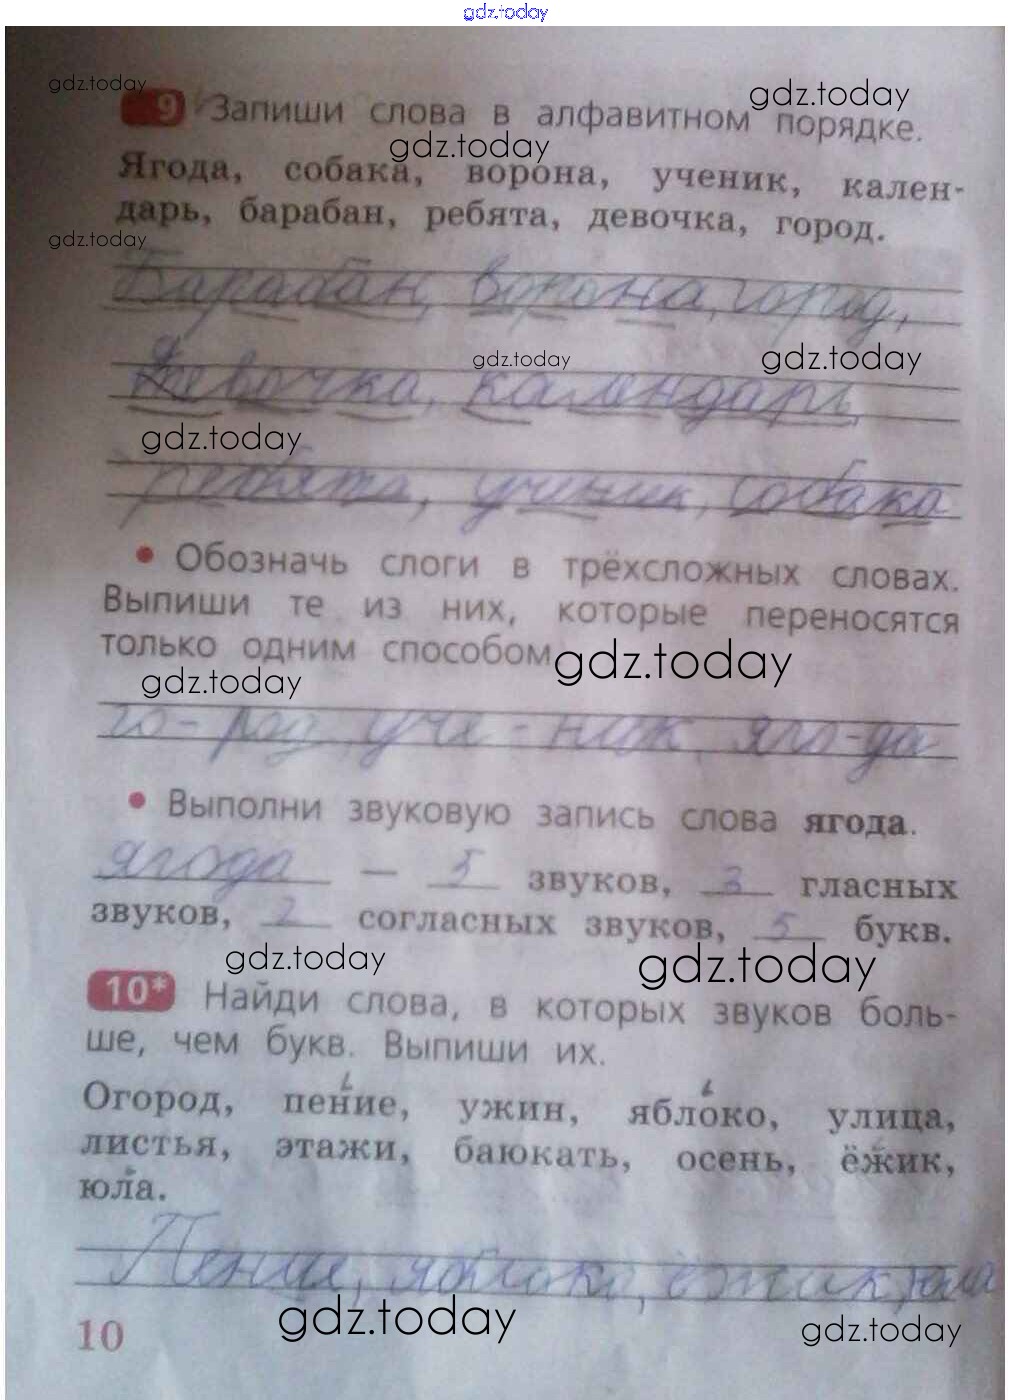 gdz.today
gdz.today
9 Запиши слова в алфавитном порядке.
gdz.today
gdz.today
Ягода, собака, ворона, ученик, кален-
дарь, барабан, ребята, девочка, город.
gdz.today
Барабан, ворона, город,
gdz.today
gdz.today
Девочка, календарь,
gdz.today
ребята, ученик, собака
• Обозначь слоги в трёхсложных словах.
Выпиши те из них, которые переносятся
только одним способом
gdz.today
gdz.today
го-род, уче-ник, яго-да
• Выполни звуковую запись слова ягода.
ягода — 5 звуков, 3 гласных
звуков, 2 согласных звуков, 5 букв.
gdz.today
gdz.today
10* Найди слова, в которых звуков боль-
ше, чем букв. Выпиши их.
Огород, пение, ужин, яблоко, улица,
листья, этажи, баюкать, осень, ёжик,
юла.
Пение, яблоко, ёжик, юла
gdz.today
gdz.today
10